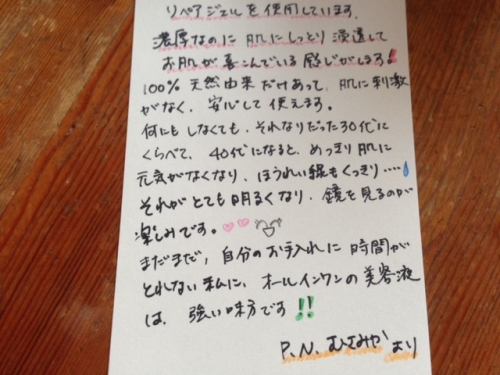 リペアジェルを使用しています。
濃厚なのに 肌にしっとり 浸透して
お肌が 喜こんでいる 感じがします!
100% 天然由来 だけあって、肌に刺激
がなく、安心して 使えます。
何にもしなくても、それなりだった30代に
くらべて、40代になると、めっきり肌に
元気がなくなり、ほうれい線もくっきり....
それがとても明るくなり、鏡を見るのが
楽しみです。♡♡
まだまだ、自分のお手入れに 時間が
とれない私に、オールインワンの美容液
は、強い味方です!!
P.N. むさみか より